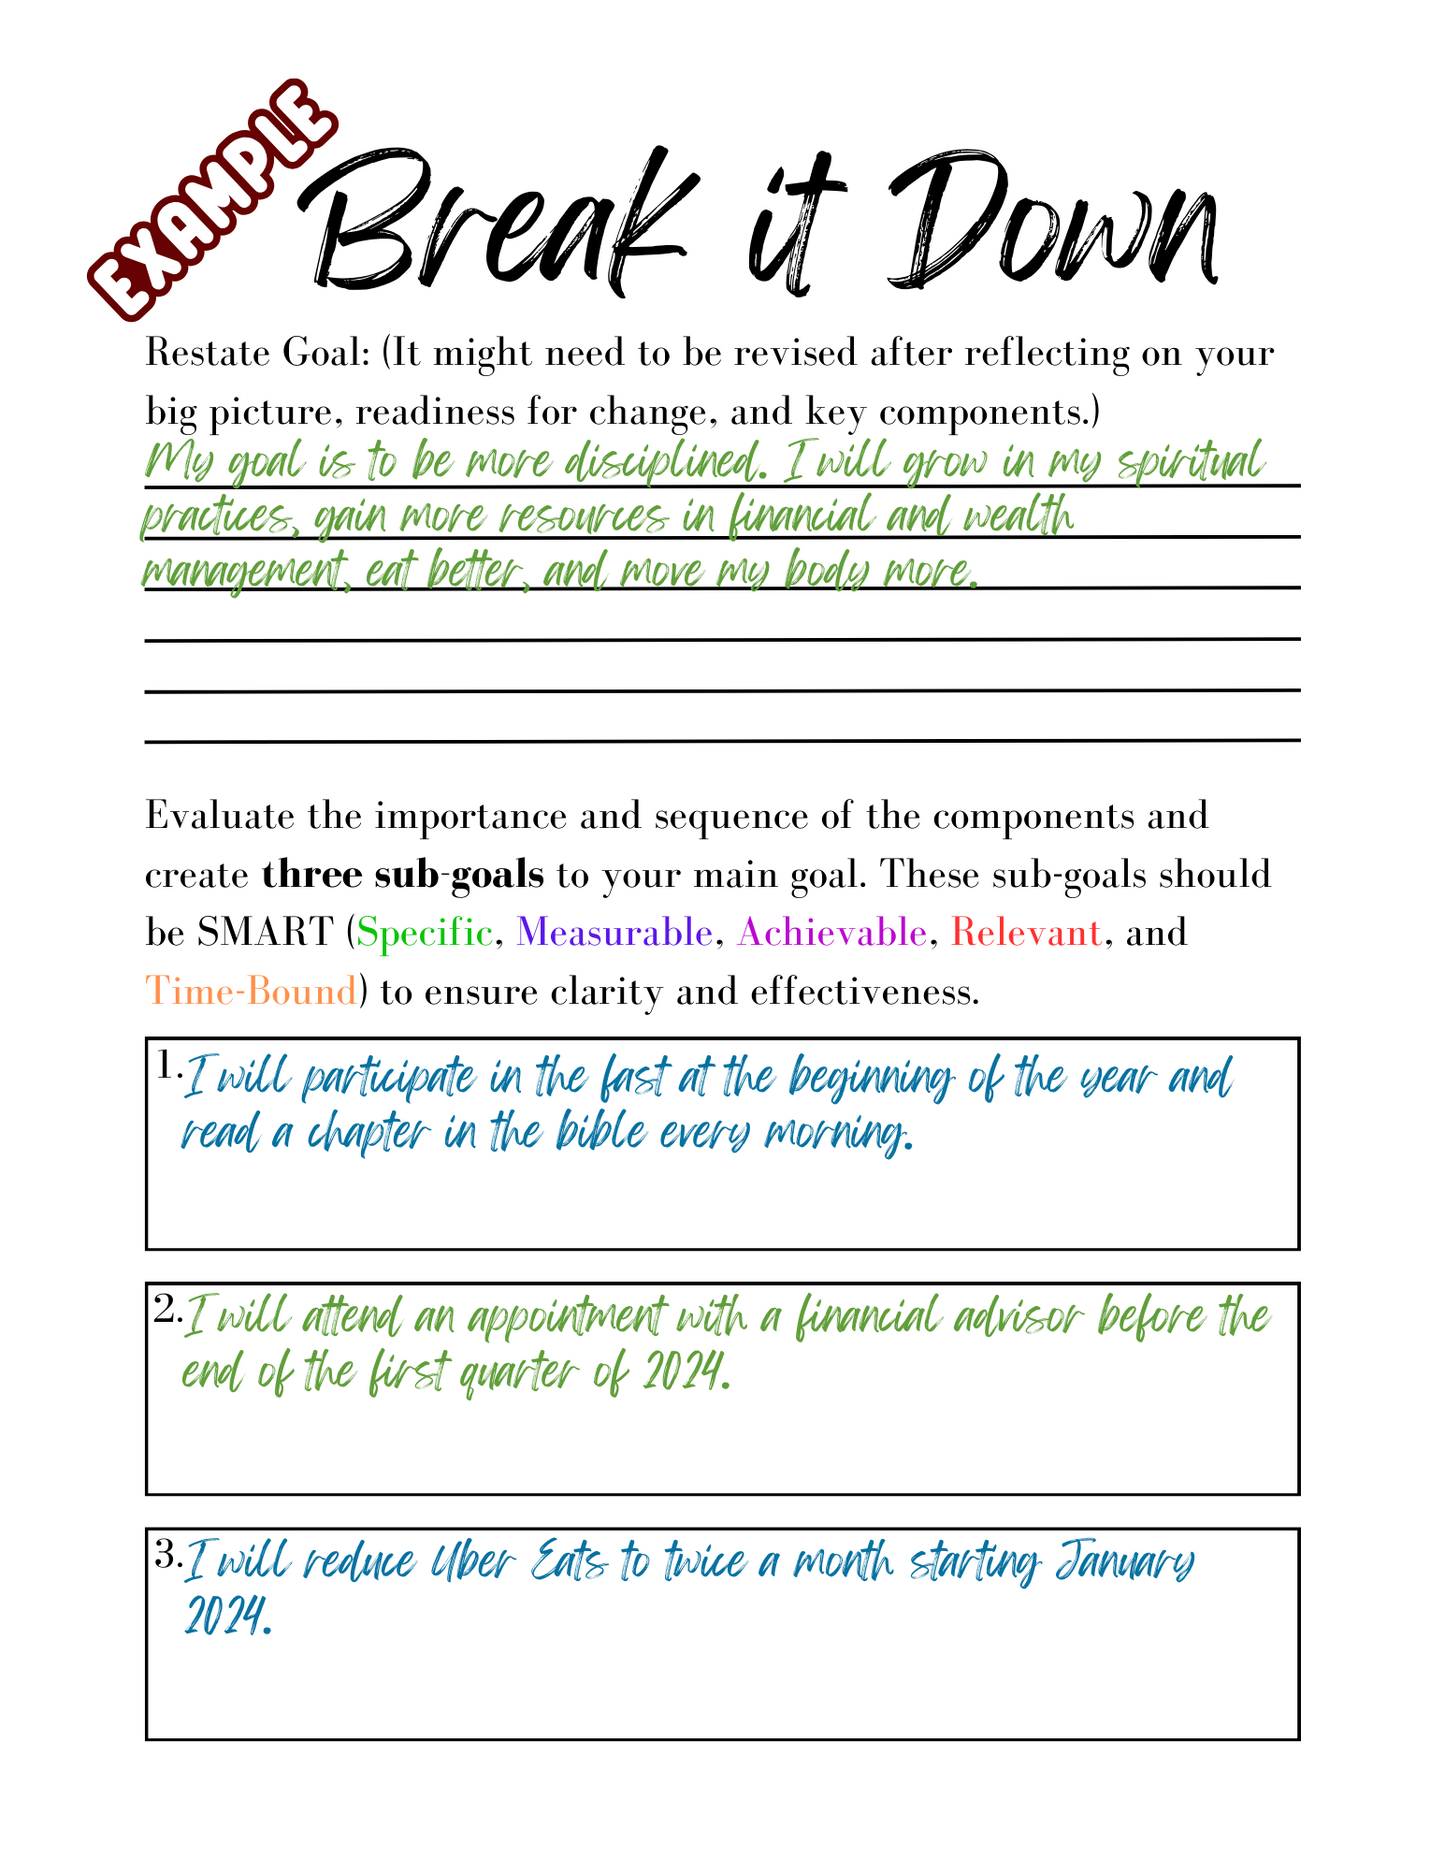 EXAMPLE
Break it Down
Restate Goal: (It might need to be revised after reflecting on your
big picture, readiness for change, and key components.)
My goal is to be more disciplined. I will grow in my spiritual
practices, gain more resources in financial and wealth
management, eat better, and move my body more.
Evaluate the importance and sequence of the components and
create three sub-goals to your main goal. These sub-goals should
be SMART (Specific, Measurable, Achievable, Relevant, and
Time-Bound) to ensure clarity and effectiveness.
1. I will participate in the fast at the beginning of the year and
read a chapter in the bible every morning.
2. I will attend an appointment with a financial advisor before the
end of the first quarter of 2024.
3. I will reduce Uber Eats to twice a month starting January
2024.